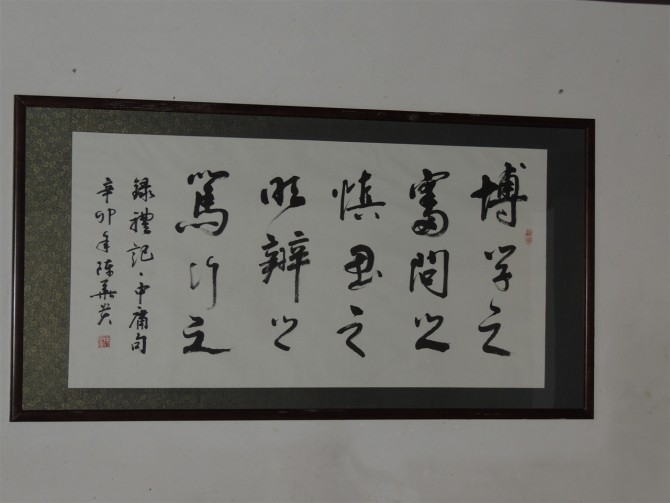 博学之
審問之
慎思之
明辨之
篤行之
録禮記·中庸句
辛卯年陳華英